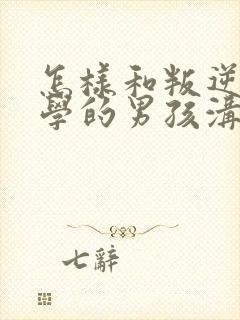 怎樣和叛逆
學的男孩溝
七辭